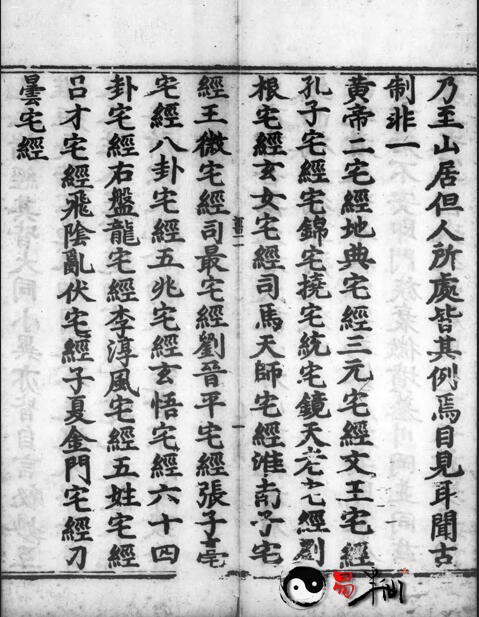 乃至山居但人所處皆其例焉目見耳聞古
制非一
黄帝二宅經地典宅經三元宅經文王宅經
孔子宅經宅錦宅撓宅統宅鏡天老宅經劉
根宅經玄女宅經司馬天師宅經淮南子宅
經王微宅經司最宅經劉晉平宅經張子毫
宅經八卦宅經五兆宅經玄悟宅經六十四
卦宅經右盤龍宅經李淳風宅經五姓宅經
呂才宅經飛陰亂伏宅經子夏金門宅經刀
曇宅經
易半仙